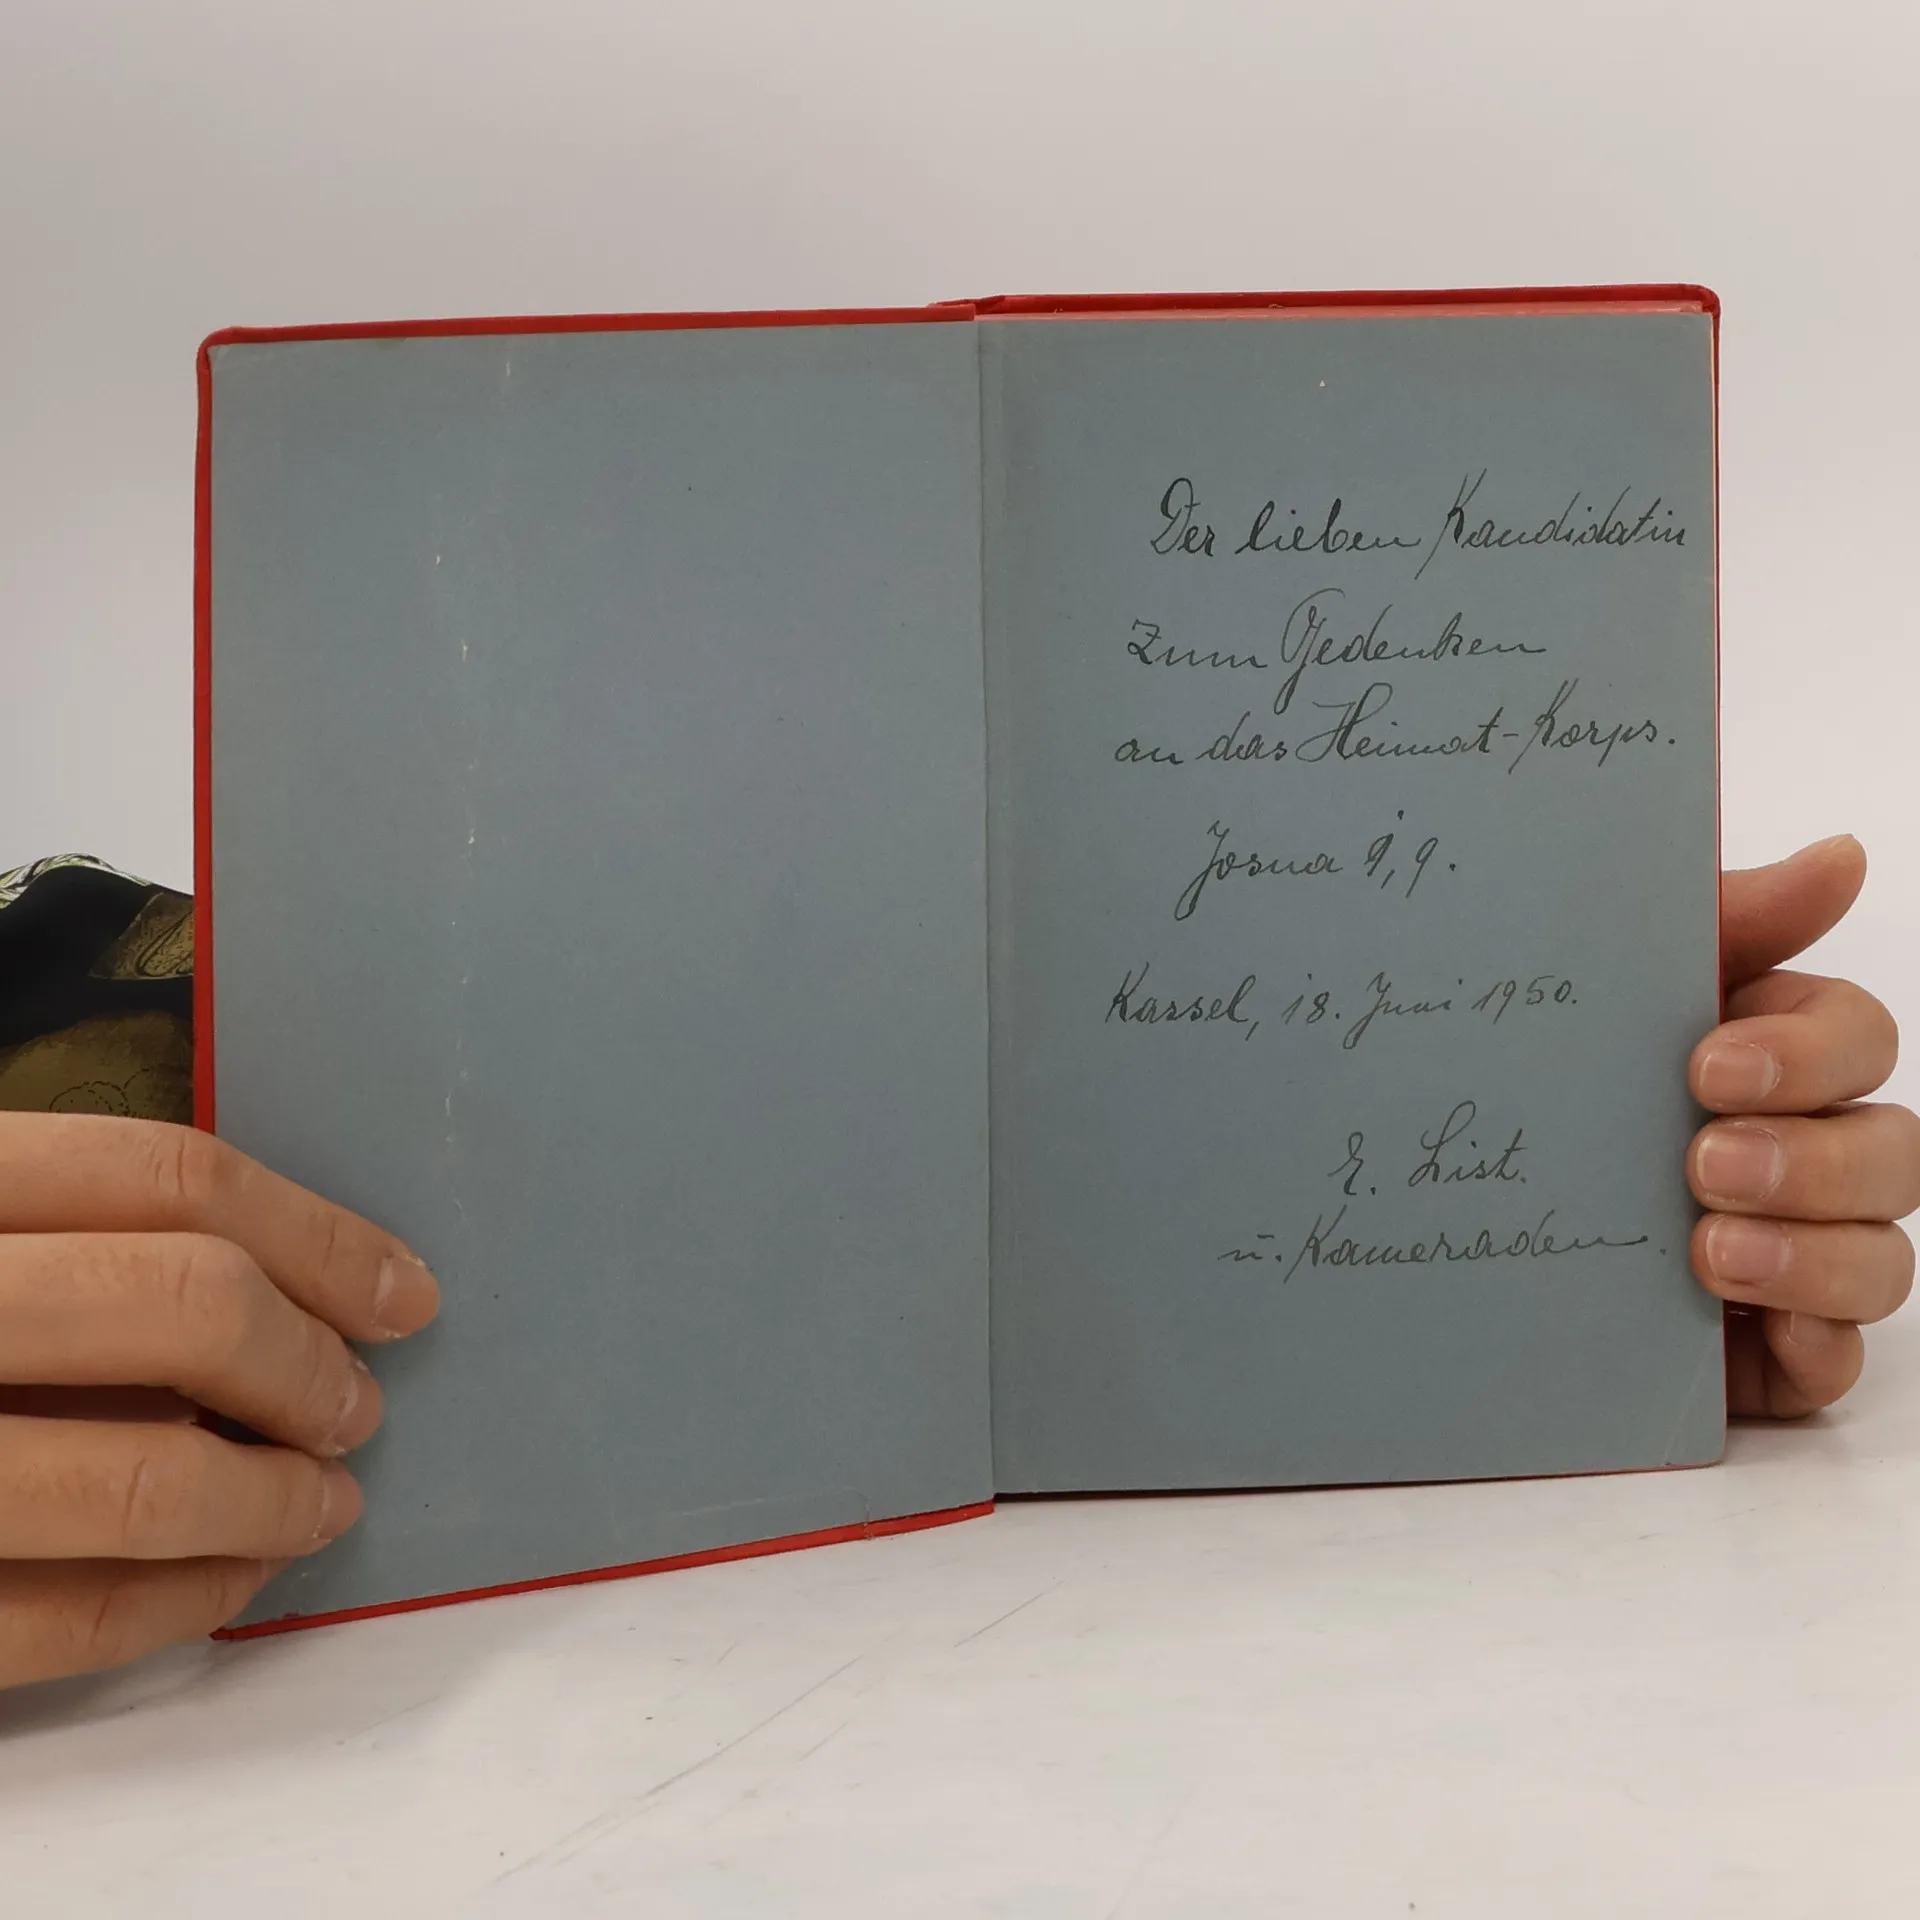 Der lieben Kandidatin
zum Gedenken
an das Heimat-Korps.
Josua 1,9.
Kassel, 18. Juni 1950.
E. List.
u. Kameraden.